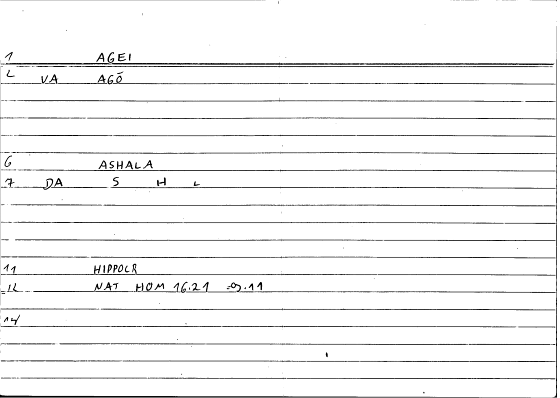 1 AGEI
2 VA AGŌ
6 ASHALA
7 DA S H L
11 HIPPOCR
12 NAT HOM 16.21
14